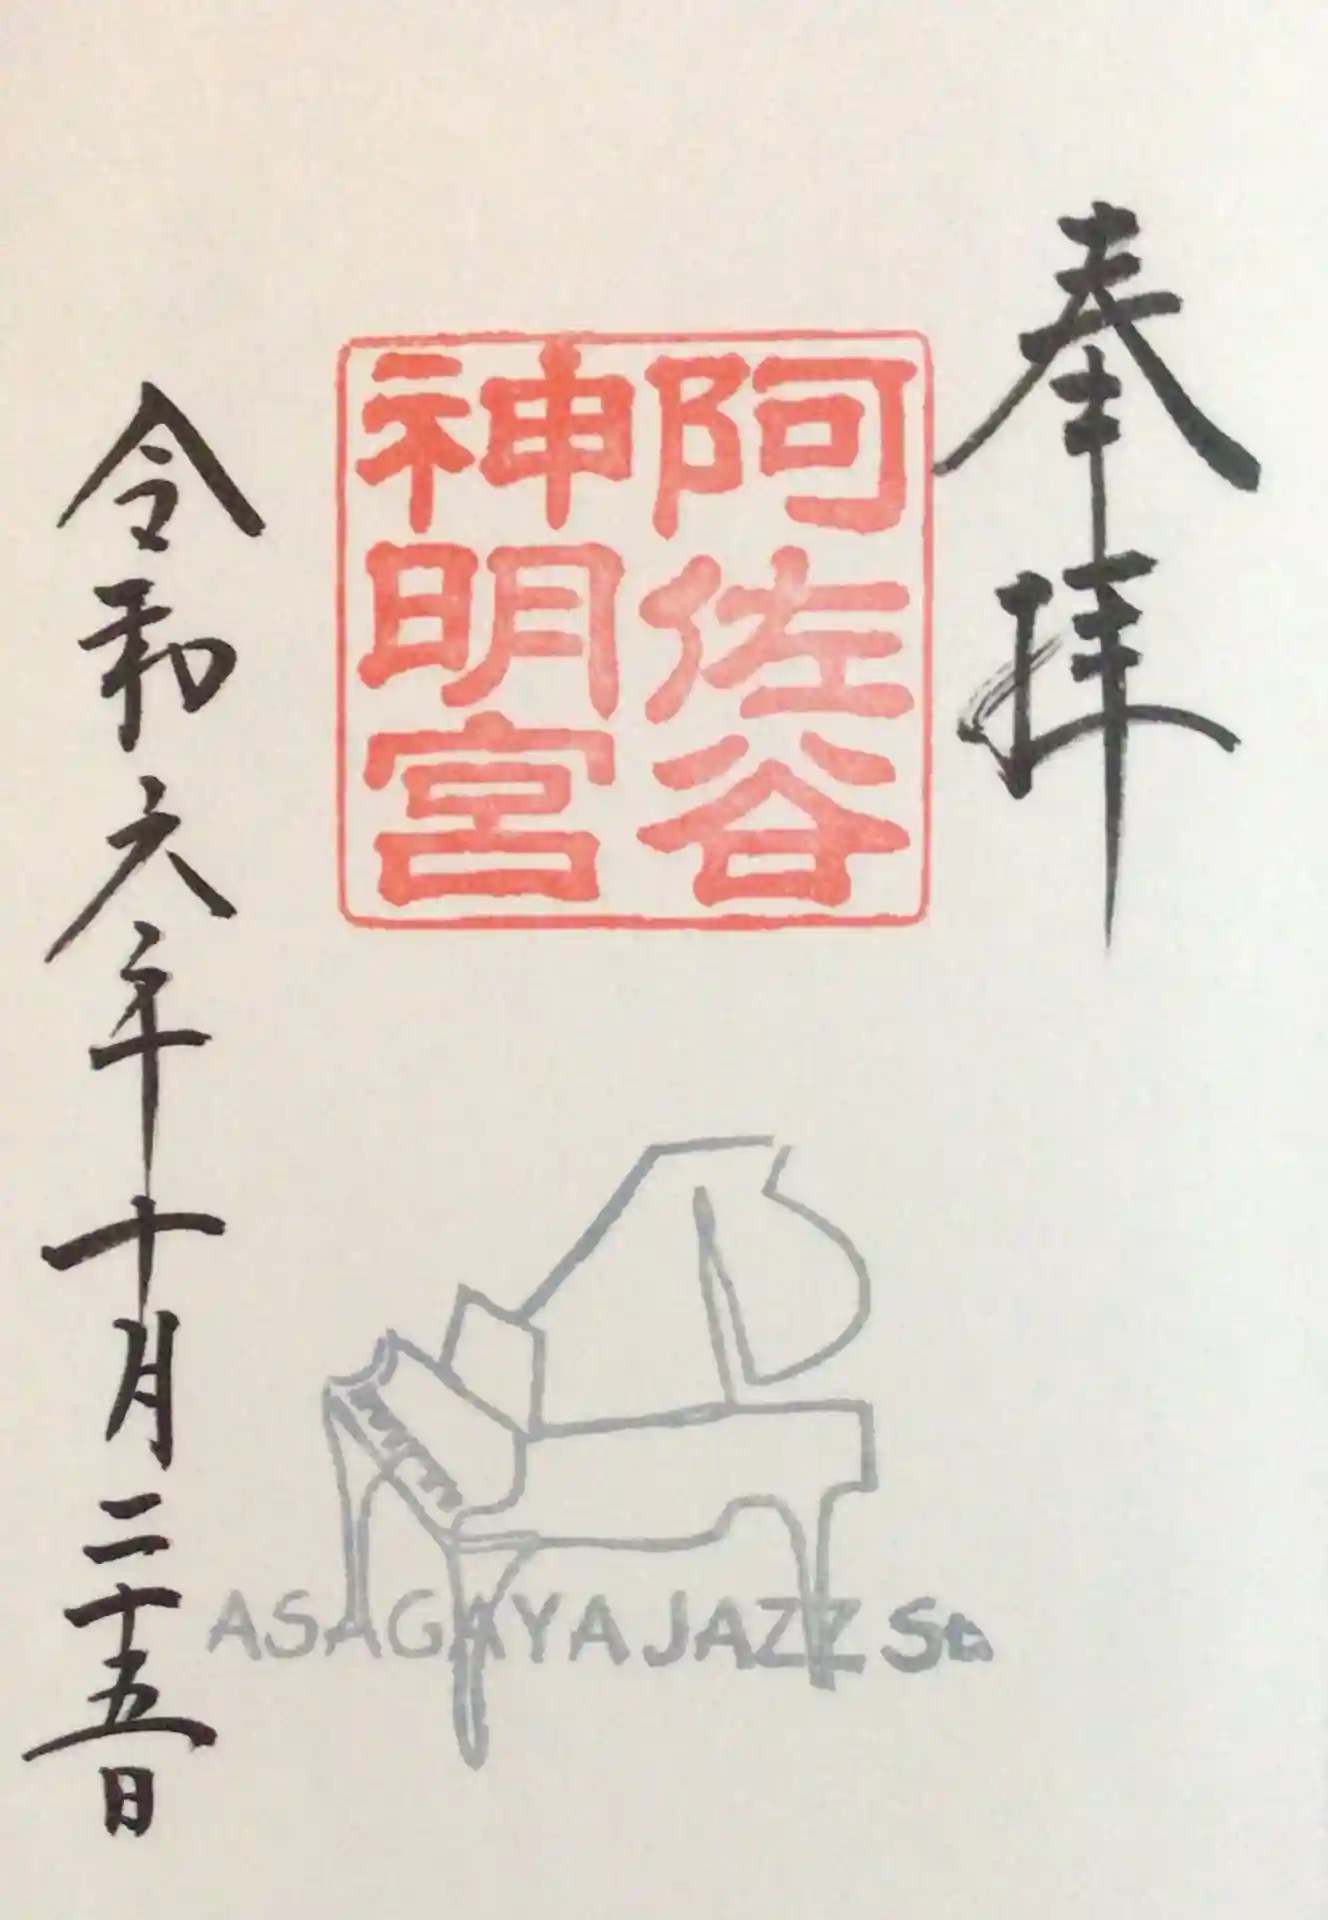 奉拝
阿佐谷
神明宮
令和六年十月二十五日
ASAGAYA JAZZ St.